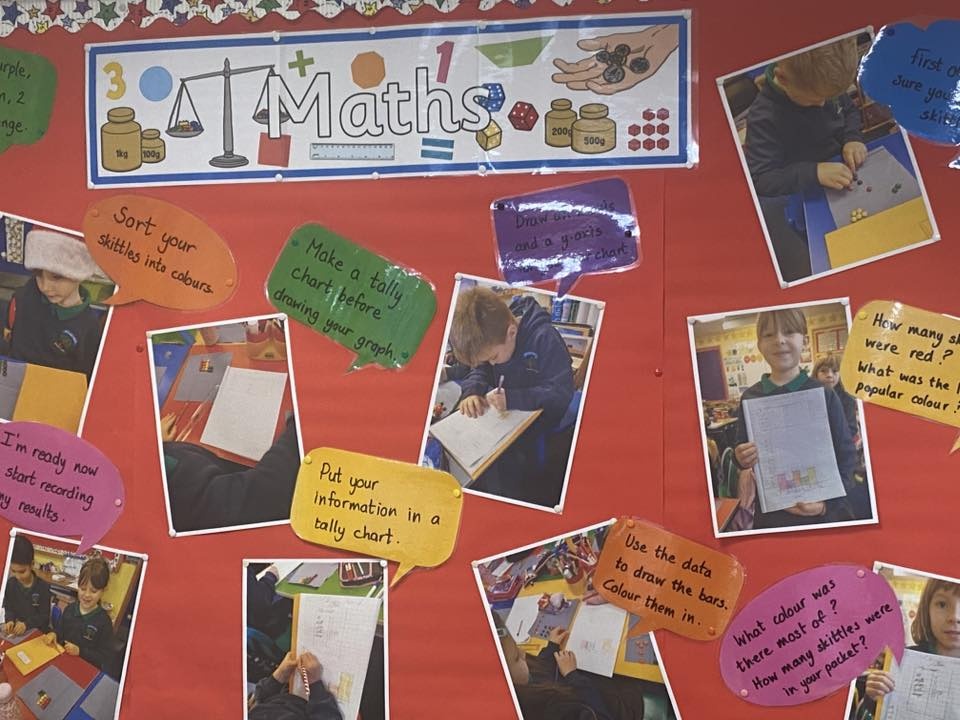 3
1
Maths
1kg
100g
200g
500g
urple,
n, 2
nge.
First
sure you
skitt
Sort your
skittles into colours.
Make a tally
chart before
drawing your
graph.
Draw an
and a y-axis
chart
How many sk
were red?
What was the
popular colour?
I'm ready now
start recording
my results.
Put your
information in a
tally chart.
Use the data
to draw the bars.
Colour them in.
What colour was
there most of?
How many skittles were
in your packet?